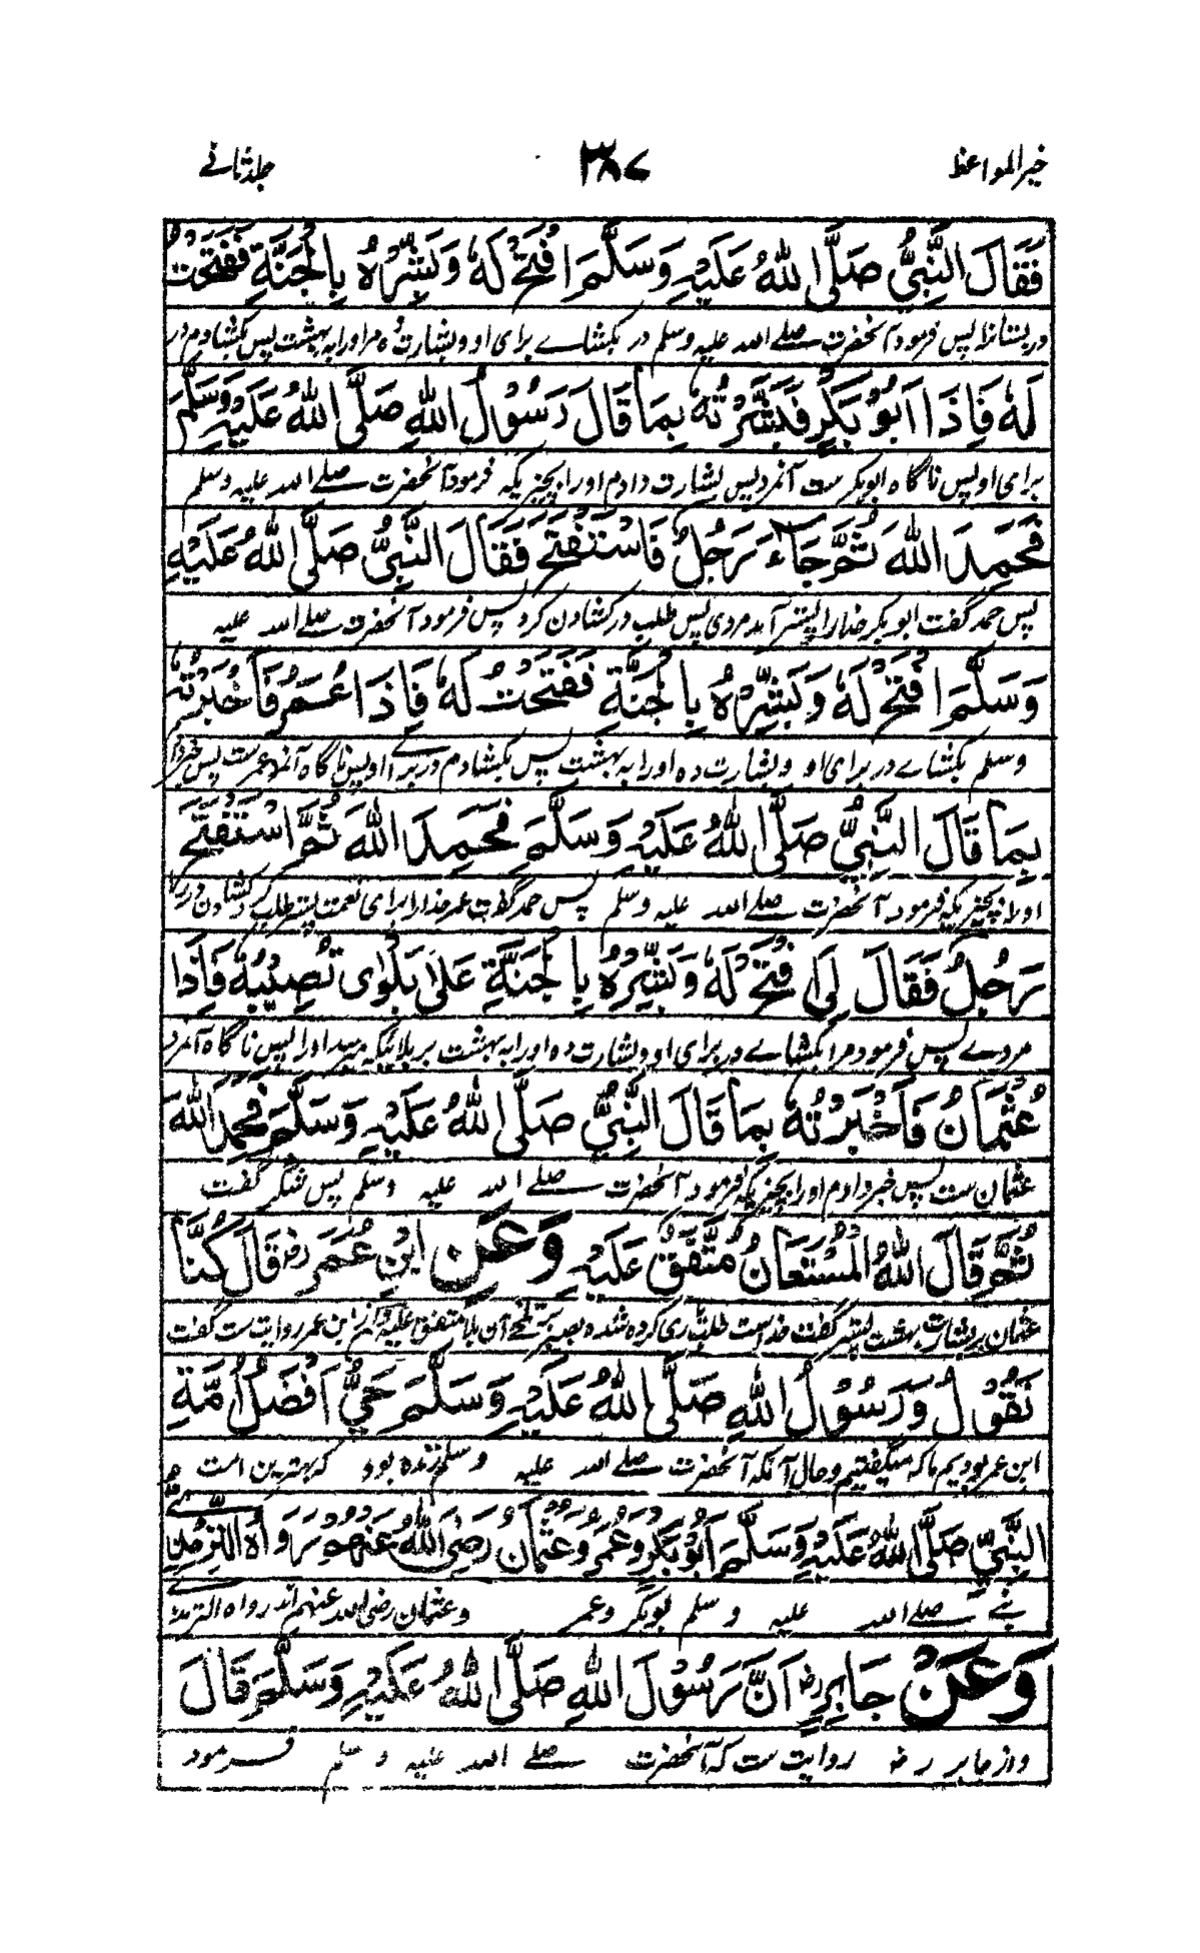 خیر المواعظ ۳۸۷ جلد ثانے
فَقَالَ النَّبِيُّ صَلَّى اللهُ عَلَيْهِ وَسَلَّمَ افْتَحْ لَهٗ وَبَشِّرْهُ بِالْجَنَّةِ فَفَتَحْتُ
در بستانرا پس فرمود آنحضرت صلے الله علیه وسلم در بکشاے برای او و بشارت ده مر اورا به بهشت پس بکشادم در
لَهٗ فَاِذَا اَبُوْ بَكْرٍ فَبَشَّرْتُهٗ بِمَا قَالَ رَسُوْلُ اللهِ صَلَّى اللهُ عَلَيْهِ وَسَلَّمَ
برای او پس ناگاه ابوبکر ست آنمرد پس بشارت دادم اورا بچیزیکه فرمود آنحضرت صلے الله علیه وسلم
فَحَمِدَ اللهَ ثُمَّ جَآءَ رَجُلٌ فَاسْتَفْتَحَ فَقَالَ النَّبِيُّ صَلَّى اللهُ عَلَيْهِ
پس حمد گفت ابوبکر خدارا پستر آمد مردی پس طلب در کشادن کرد پس فرمود آنحضرت صلے الله علیه
وَسَلَّمَ افْتَحْ لَهٗ وَبَشِّرْهُ بِالْجَنَّةِ فَفَتَحْتُ لَهٗ فَاِذَا عُمَرُ فَاَخْبَرْتُهٗ
وسلم بکشاے در برای او و بشارت ده اورا به بهشت پس بکشادم در براے او پس ناگاه آنمرد عمرست پس خبر
بِمَا قَالَ النَّبِيُّ صَلَّى اللهُ عَلَيْهِ وَسَلَّمَ فَحَمِدَ اللهَ ثُمَّ اسْتَفْتَحَ
اورا بچیزیکه فرمود آنحضرت صلے الله علیه وسلم پس حمد گفت عمر خدارا برای نعمت پستر طلب کشادن در
رَجُلٌ فَقَالَ لِيَ افْتَحْ لَهٗ وَبَشِّرْهُ بِالْجَنَّةِ عَلٰى بَلْوٰى تُصِيْبُهٗ فَاِذَا
مردے پس فرمود مرا بکشاے در برای او و بشارت ده اورا به بهشت بر بلائیکه میرسد اورا پس ناگاه آنمرد
عُثْمَانُ فَاَخْبَرْتُهٗ بِمَا قَالَ النَّبِيُّ صَلَّى اللهُ عَلَيْهِ وَسَلَّمَ فَحَمِدَ اللهَ
عثمان ست پس خبر دادم اورا بچیزیکه فرمود آنحضرت صلے الله علیه وسلم پس شکر گفت
ثُمَّ قَالَ اللهُ الْمُسْتَعَانُ مُتَّفَقٌ عَلَيْهِ وَعَنِ ابْنِ عُمَرَ رض قَالَ كُنَّا
عثمان بر بشارت بهشت پستر گفت خداست طلب یاری کرده شده بصبر بر تلخے آن بلا متفق علیه و از ابن عمر روایت ست گفت
نَقُوْلُ وَرَسُوْلُ اللهِ صَلَّى اللهُ عَلَيْهِ وَسَلَّمَ حَيٌّ اَفْضَلُ اُمَّةِ
ابن عمر بودیم ما که میگفتیم و حال آنکه آنحضرت صلے الله علیه وسلم زنده بود که بهترین امت
النَّبِيِّ صَلَّى اللهُ عَلَيْهِ وَسَلَّمَ اَبُوْ بَكْرٍ وَعُمَرُ وَعُثْمَانُ رَضِيَ اللهُ عَنْهُمْ رَوَاهُ التِّرْمِذِيُّ
نبے صلے الله علیه وسلم ابوبکر وعمر وعثمان رضی الله عنهم اند رواه الترمذے
وَعَنْ جَابِرٍ رض اَنَّ رَسُوْلَ اللهِ صَلَّى اللهُ عَلَيْهِ وَسَلَّمَ قَالَ
و از جابر رض روایت ست که آنحضرت صلے الله علیه وسلم فرمود